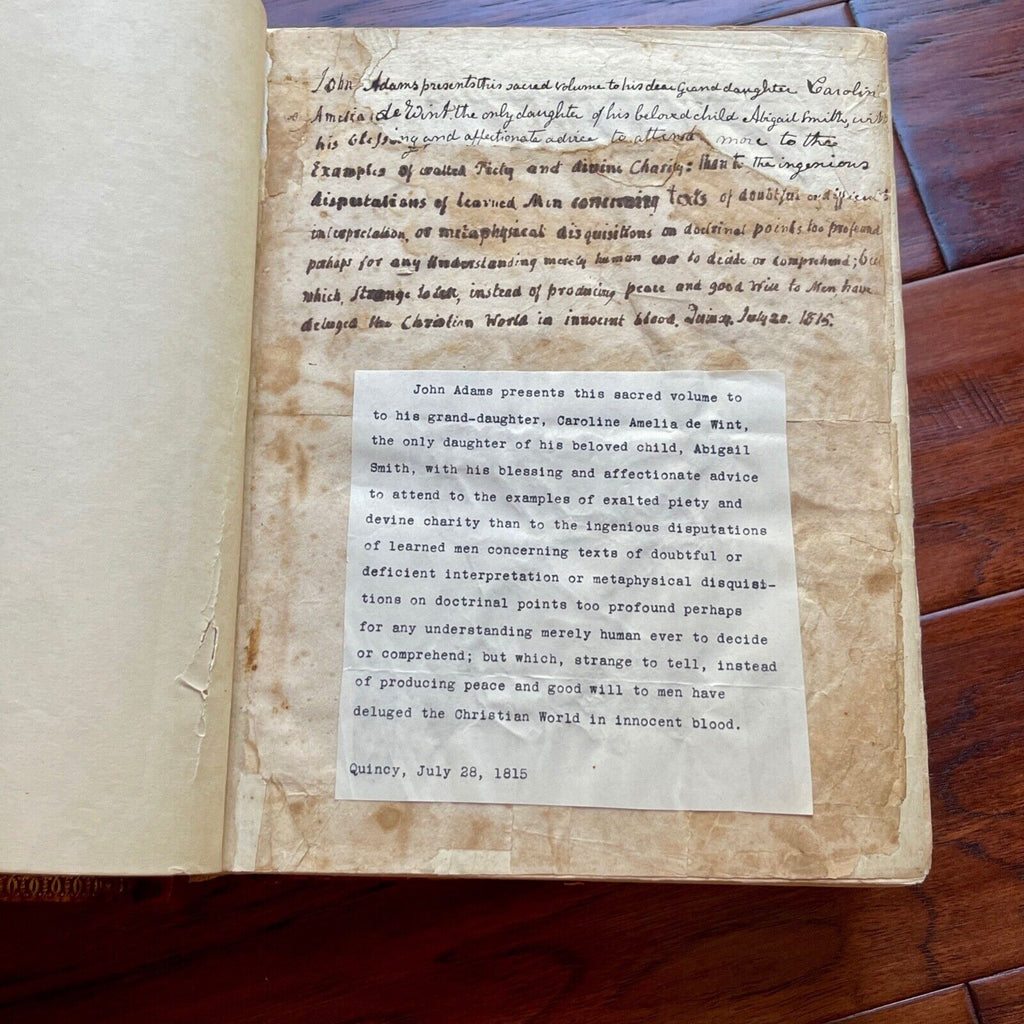 John Adams presents this sacred volume to his dear Grand daughter Carolin
Amelia de Wint the only daughter of his beloved child Abigail Smith, with
his blessing and affectionate advice to attend more to the
Examples of exalted Piety and divine Charity: than to the ingenious
disputations of learned Men concerning texts of doubtful or difficult
interpretation, or metaphysical disquisitions on doctrinal points too profound
perhaps for any Understanding merely human ever to decide or comprehend; but
which, Strange to tell, instead of producing peace and good Will to Men, have
deluged the Christian World in innocent blood. Quincy, July 28. 1815.
John Adams presents this sacred volume to
to his grand-daughter, Caroline Amelia de Wint,
the only daughter of his beloved child, Abigail
Smith, with his blessing and affectionate advice
to attend to the examples of exalted piety and
devine charity than to the ingenious disputations
of learned men concerning texts of doubtful or
deficient interpretation or metaphysical disquisi-
tions on doctrinal points too profound perhaps
for any understanding merely human ever to decide
or comprehend; but which, strange to tell, instead
of producing peace and good will to men have
deluged the Christian World in innocent blood.
Quincy, July 28, 1815